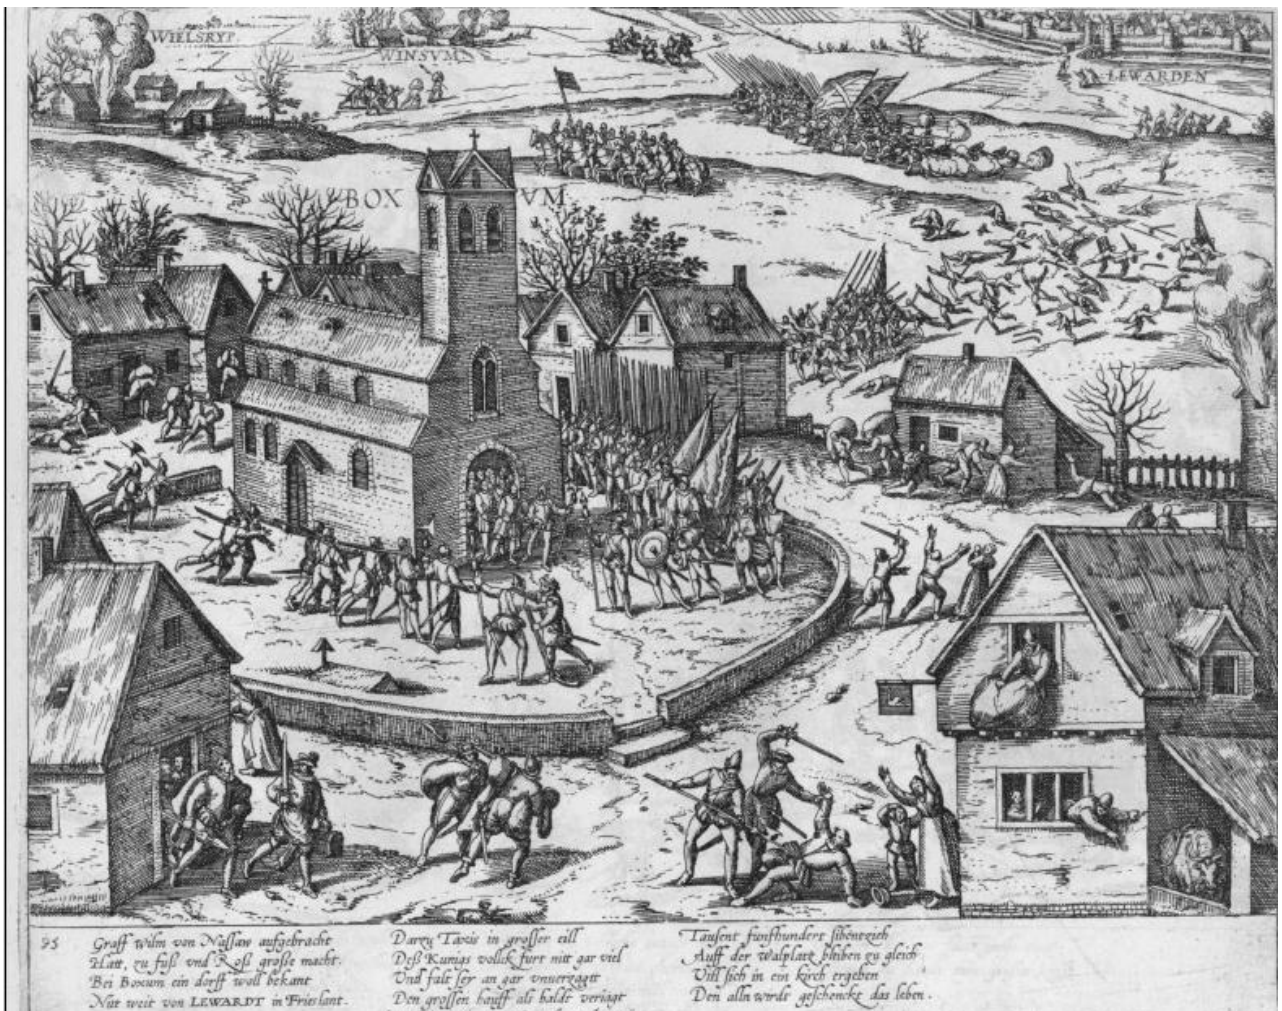 WIELSRYP.
WINSVM
LEWARDEN
BOXVM
95
Graff Wilm von Nassaw aufgebracht
Hatt, zu fuß vnd Roß große macht.
Bei Boxum ein dorff woll bekant
Nit weit von LEWARDT in Frieslant.
Darzu Taxis in grosser eill
Deß Kunigs vollck furt mit gar viel
Vnd falt ser an gar vnuerzagt
Den grossen hauff als baldt veriagt
Tausent funfhundert sibentzich
Auff der walplatz bleiben zu gleich
Vill sich in ein kirch ergeben
Den alln wirdt geschenckt das leben.